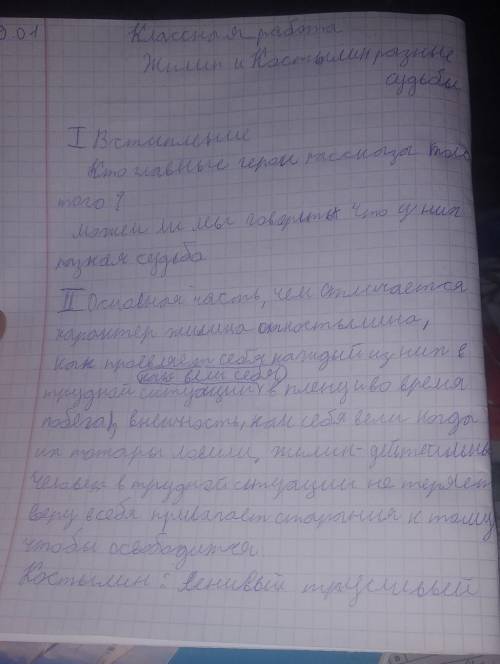 9.01
Классная работа
Жилин и Костылин разные
судьбы
I Вступление
Кто главные герои рассказа Толс
того?
можем ли мы говорить что у них
разная судьба
II Основная часть, чем отличается
характер жилина от костылина,
как проевляет себя каждый из них в
(как вели себя)
трудной ситуации в плену и во время
побега), внешность, как себя вели когда
их татары ловили, жилин - действительны
человек в трудной ситуации не теряет
веру в себя прилагает старыния к тому
чтобы освободится
Костылин: Ленивый трусливый